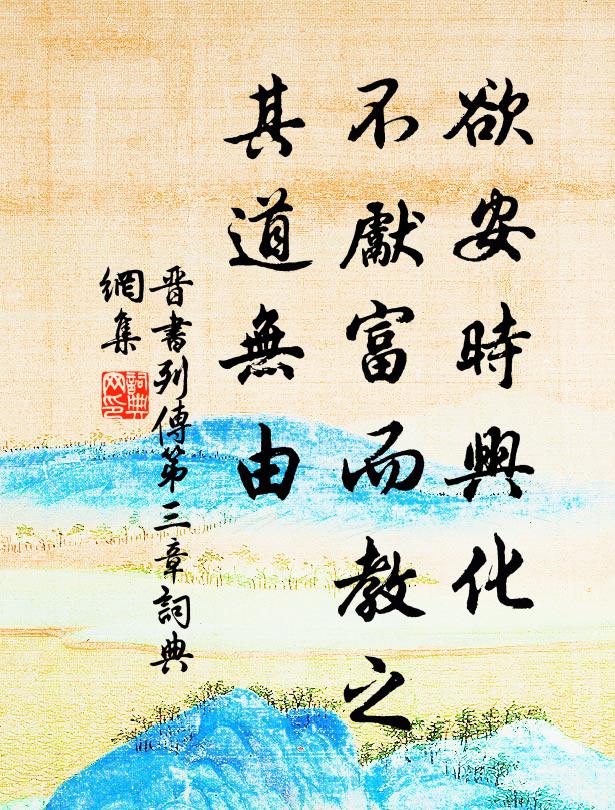 欲安時興化
不獻富而教之
其道無由
晉書列傳第三章詞典
網集
詞典
网印